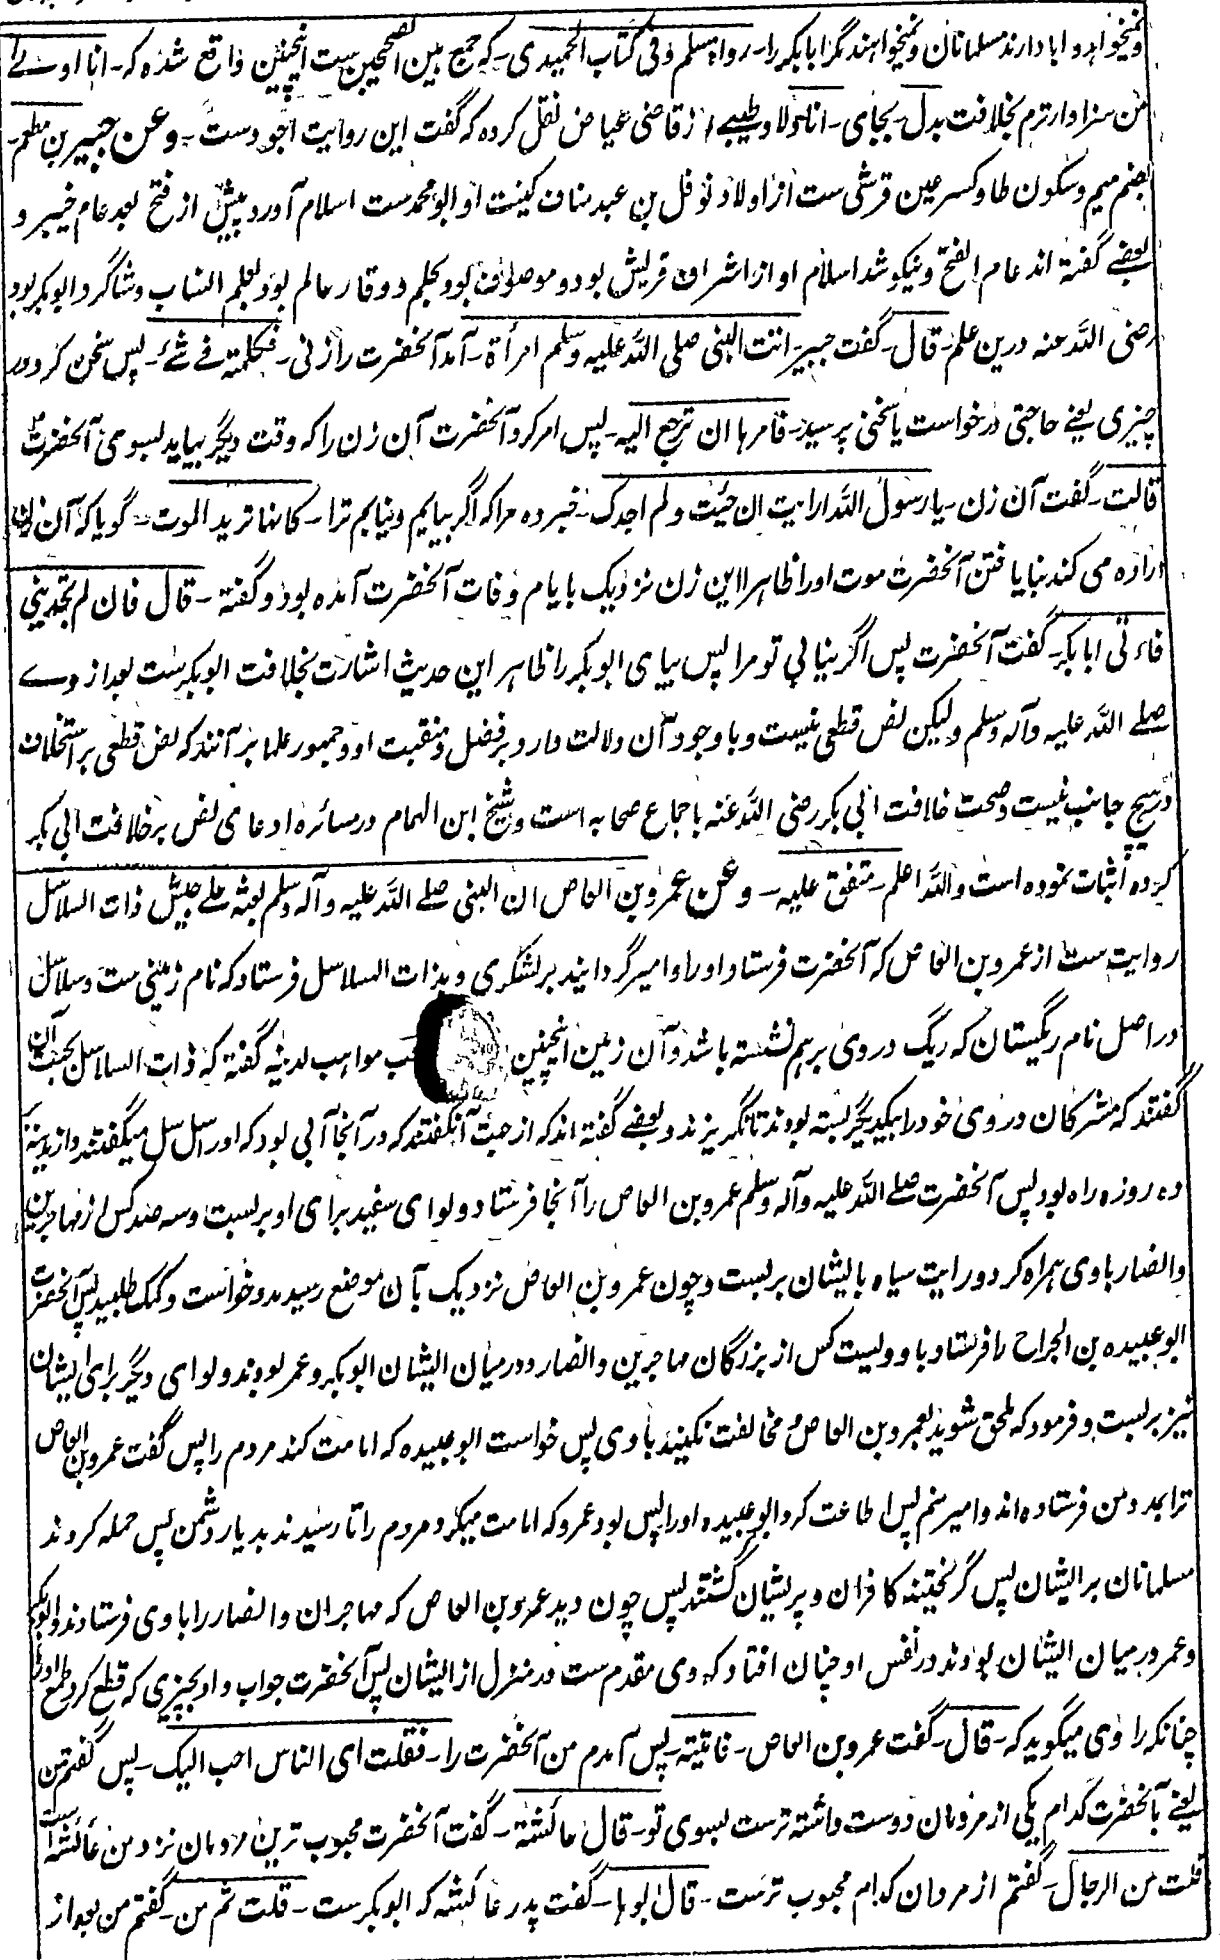 و نمیخواهد و ابا دارند مسلمانان و نمیخواهند مگر ابابکر را۔ رواه مسلم وفی کتاب الحمیدی۔ که جمع بین الصحیحین ست اینچنین واقع شده که۔ انا اولے
من سزاوارترم بخلافت بدل۔ بجای۔ انا ولا و طیبے از قاضی عیاض نقل کرده که گفت این روایت اجود ست۔ وعن جبیر بن مطعم۔
بضم میم و سکون طا و کسر عین قرشی ست از اولاد نوفل بن عبد مناف کنیت او ابو محمد ست اسلام آورد پیش از فتح بعد عام خیبر و
بعضے گفته اند عام الفتح و نیکو شد اسلام او از اشراف قریش بود و موصوف بود بحلم و وقار عالم بود بعلم انساب و شاگرد ابو بکر بود
رضی الله عنه درین علم۔ قال۔ گفت جبیر۔ اتت النبی صلی الله علیه وسلم امرأة۔ آمد آنحضرت را زنی۔ فکلمته فے شئ۔ پس سخن کرد در
چیزی یعنے حاجتی درخواست یا سخنی پرسید۔ فامرها ان ترجع الیه۔ پس امر کرد آنحضرت آن زن را که وقت دیگر بیاید بسوی آنحضرت
قالت۔ گفت آن زن۔ یا رسول الله ارایت ان جئت ولم اجدک۔ خبر ده مرا که اگر بیایم و نیابم ترا۔ کانها ترید الموت۔ گویا که آن زن
اراده می کند بنا یافتن آنحضرت موت او را ظاهرا این زن نزدیک بایام وفات آنحضرت آمده بود و گفته۔ قال فان لم تجدینی
فاءتی ابابکر۔ گفت آنحضرت پس اگر نیابی تو مرا پس بیای ابوبکر را ظاهر این حدیث اشارت بخلافت ابوبکر ست بعد از وے
صلے الله علیه وآله وسلم ولیکن نص قطعی نیست و با وجود آن دلالت دارد بر فضل و منقبت او و جمهور علما بر آنند که نص قطعی بر استخلاف
در هیچ جانب نیست و صحت خلافت ابی بکر رضی الله عنه باجماع صحابه است و شیخ ابن الهمام در مسائره ادعای نص بر خلافت ابی بکر
کرده اثبات نموده است والله اعلم۔ متفق علیه۔ وعن عمرو بن العاص ان النبی صلے الله علیه وآله وسلم بعثه علے جیش ذات السلاسل
روایت ست از عمرو بن العاص که آنحضرت فرستاد او را و امیر گردانید بر لشکری و بذات السلاسل فرستاد که نام زمینی ست و سلاسل
در اصل نام ریگستان که ریگ در وی برهم نشسته باشد و آن زمین اینچنین مواهب لدنیه گفته که ذات السلاسل بجهت آن
گفتند که مشرکان در وی خود را بیکدیگر بسته بودند تا نگریزند و بعضے گفته اند که از جهت آن گفتند که در آنجا آبی بود که او را سل سل میگفتند و از مدینه
ده روزه راه بود پس آنحضرت صلے الله علیه وآله وسلم عمرو بن العاص را آنجا فرستاد و لوای سفید برای او بربست و سه صد کس از مهاجرین
و انصار با وی همراه کرد و رایت سیاه بایشان بربست و چون عمرو بن العاص نزدیک بآن موضع رسید مدد خواست و کمک طلبید پس آنحضرت
ابو عبیده بن الجراح را فرستاد با دویست کس از بزرگان مهاجرین و انصار و درمیان ایشان ابوبکر و عمر بودند و لوای دیگر برای ایشان
نیز بربست و فرمود که ملحق شوید بعمرو بن العاص و مخالفت نکنید با وی پس خواست ابو عبیده که امامت کند مردم را پس گفت عمرو بن العاص
ترا بمدد من فرستاده اند و امیر منم پس اطاعت کرد ابو عبیده او را پس بود عمرو که امامت میکرد مردم را تا رسیدند بدیار دشمن پس حمله کردند
مسلمانان بر ایشان پس گریختند کافران و پریشان گشتند پس چون دید عمرو بن العاص که مهاجران و انصار را با وی فرستادند و ابوبکر
و عمر درمیان ایشان بودند در نفس او چنان افتاد که وی مقدم ست در منزل از ایشان پس آنحضرت جواب داد بچیزی که قطع کرد طمع او را
چنانکه راوی میگوید که۔ قال۔ گفت عمرو بن العاص۔ فاتیته۔ پس آمدم من آنحضرت را۔ فقلت ای الناس احب الیک۔ پس گفتم من
یعنے بآنحضرت کدام یکی از مردمان دوست داشته ترست بسوی تو۔ قال عائشة۔ گفت آنحضرت محبوب ترین مردمان نزد من عائشه است
قلت من الرجال۔ گفتم از مردان کدام محبوب ترست۔ قال ابوها۔ گفت پدر عائشه که ابوبکر ست۔ قلت ثم من۔ گفتم من بعد از